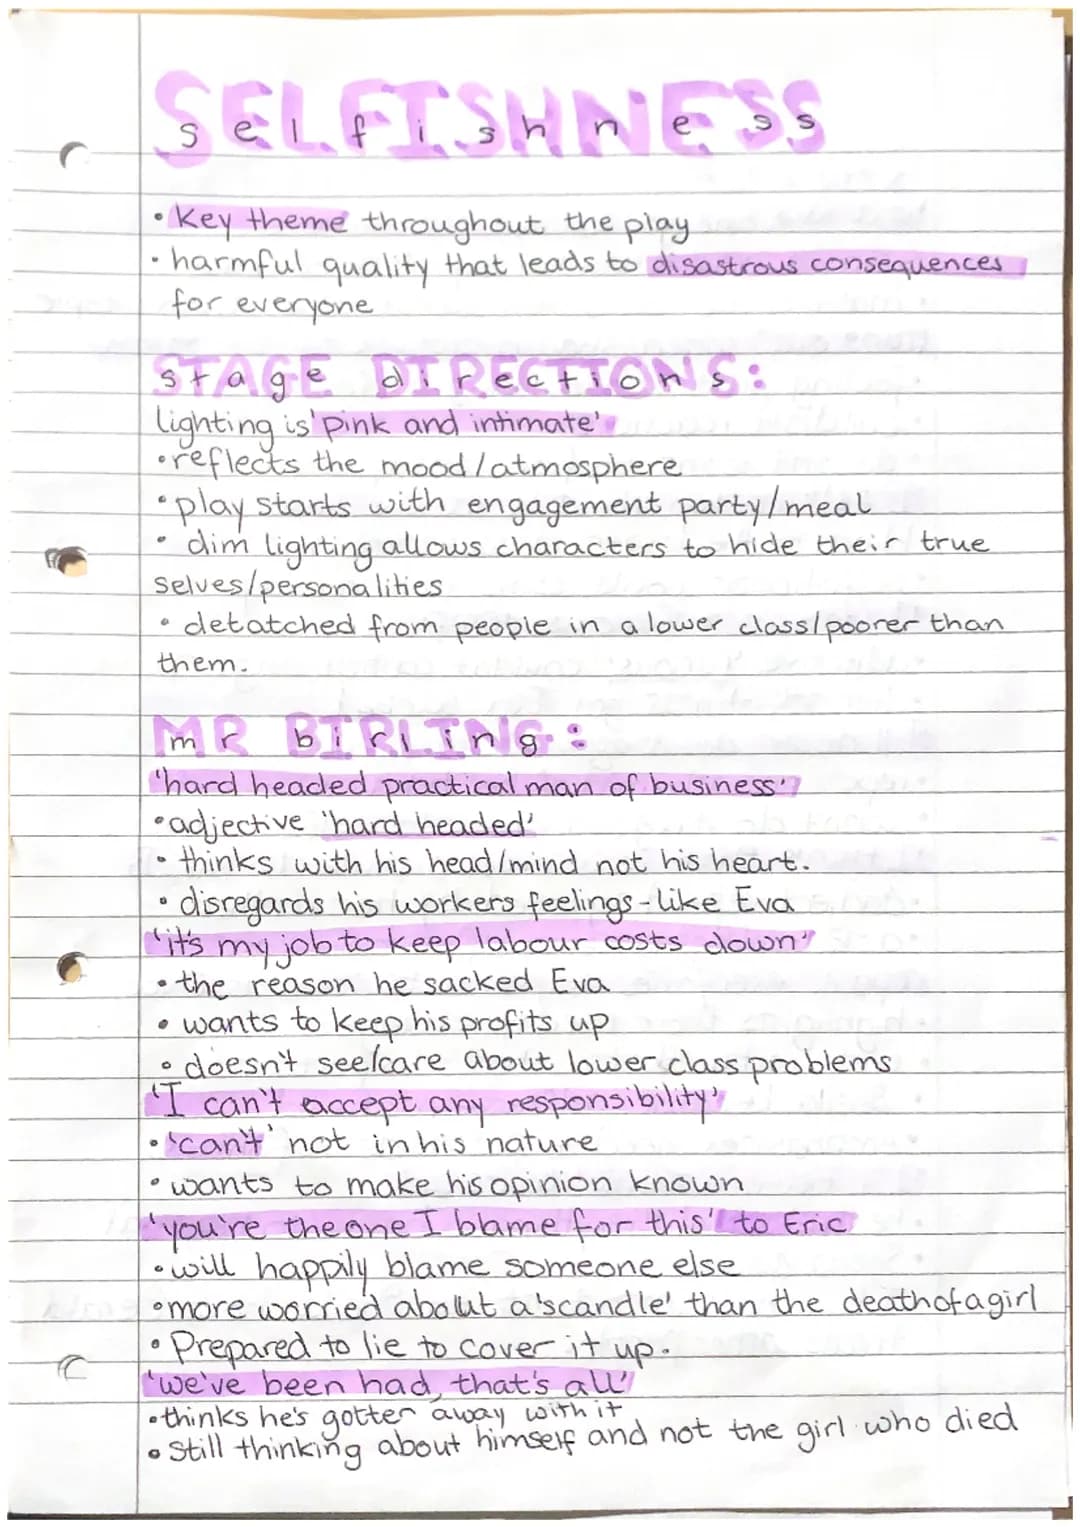 SELFISHNESS
selfishness
• Key theme throughout the play
• harmful quality that leads to disastrous consequences
for everyone
STAGE DIRECTIONS:
lighting is 'pink and intimate'
• reflects the mood/atmosphere
• play starts with engagement party/meal
• dim lighting allows characters to hide their true
selves/personalities
• detatched from people in a lower class/poorer than
them.
MR BIRLING:
'hard headed practical man of business'
• adjective 'hard headed'
• thinks with his head/mind not his heart.
• disregards his workers feelings - like Eva
'it's my job to keep labour costs down'
• the reason he sacked Eva
• wants to keep his profits up
• doesn't see/care about lower class problems
'I can't accept any responsibility'
• 'can't' not in his nature
• wants to make his opinion known
'you're the one I blame for this' to Eric
• will happily blame someone else
• more worried about a 'scandle' than the death of a girl
• Prepared to lie to cover it up.
'we've been had, that's all'
• thinks he's gotten away with it
• Still thinking about himself and not the girl who died